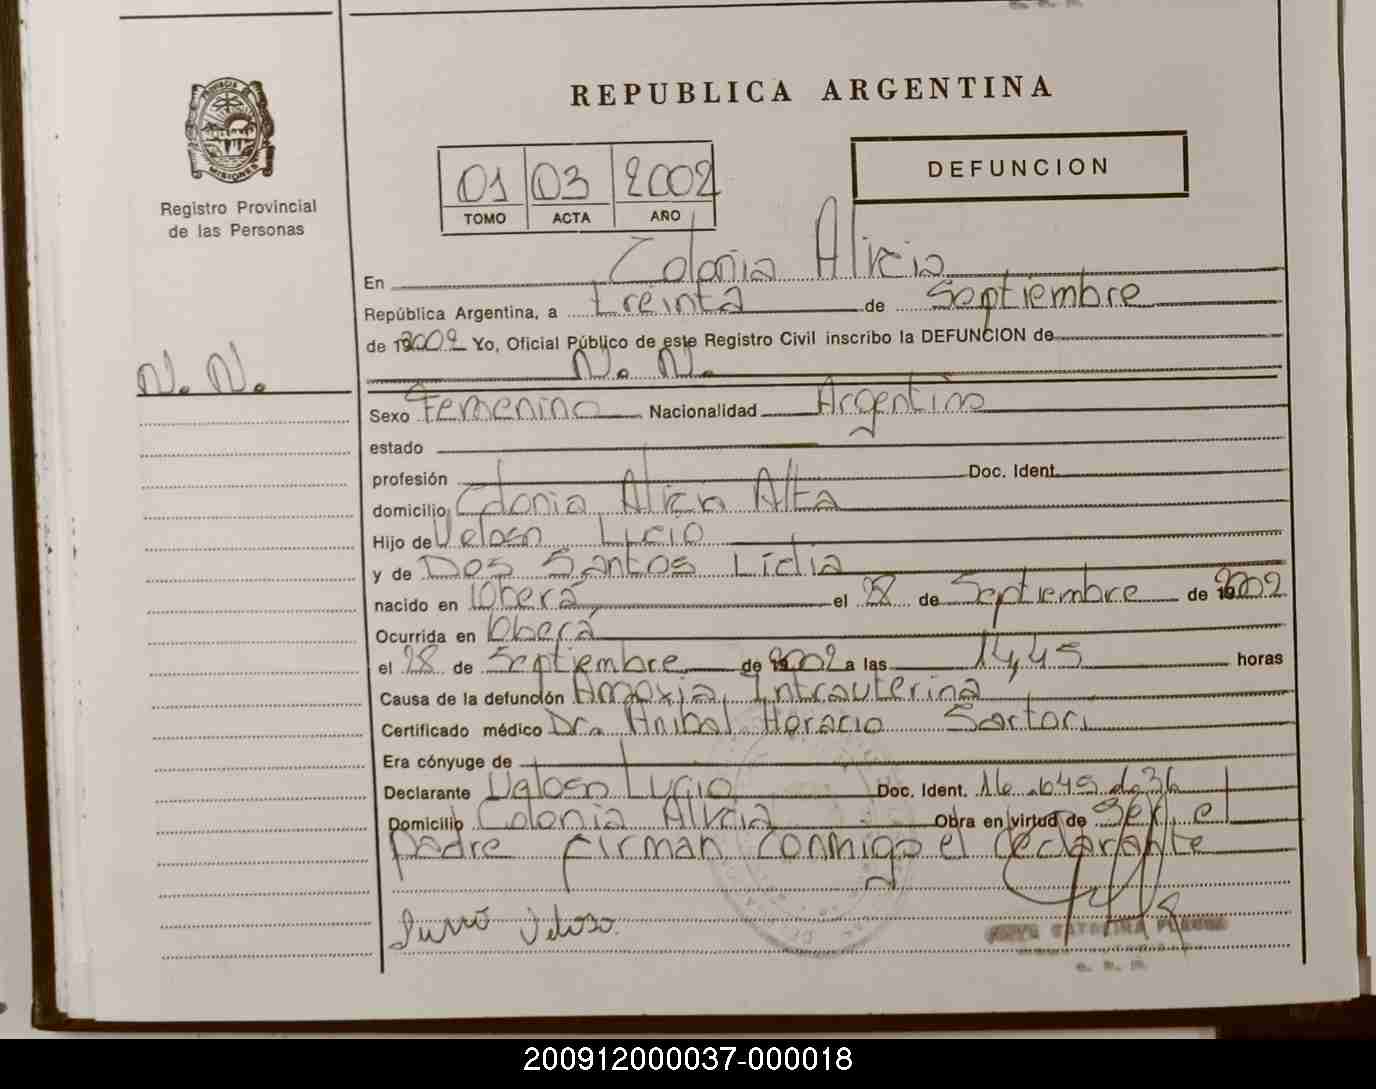 REPUBLICA ARGENTINA
PROVINCIA DE
MISIONES
Registro Provincial
de las Personas
01 03 2002
TOMO ACTA AÑO
DEFUNCION
En Colonia Alicia
República Argentina, a treinta de Septiembre
de 2002 Yo, Oficial Público de este Registro Civil inscribo la DEFUNCION de
N. N.
N. N.
Sexo Femenino Nacionalidad Argentino
estado
profesión Doc. Ident.
domicilio Colonia Alicia Alta
Hijo de Veloso Lucio
y de Dos Santos Lidia
nacido en Oberá el 28 de Septiembre de 2002
Ocurrida en Oberá
el 28 de Septiembre de 2002 a las 14,45 horas
Causa de la defunción Anoxia Intrauterina
Certificado médico Dr. Anibal Horacio Sartori
Era cónyuge de
Declarante Veloso Lucio Doc. Ident. 16.645.
Domicilio Colonia Alicia Obra en virtud de ser el
padre firman conmigo el declarante
Veloso
200912000037-000018